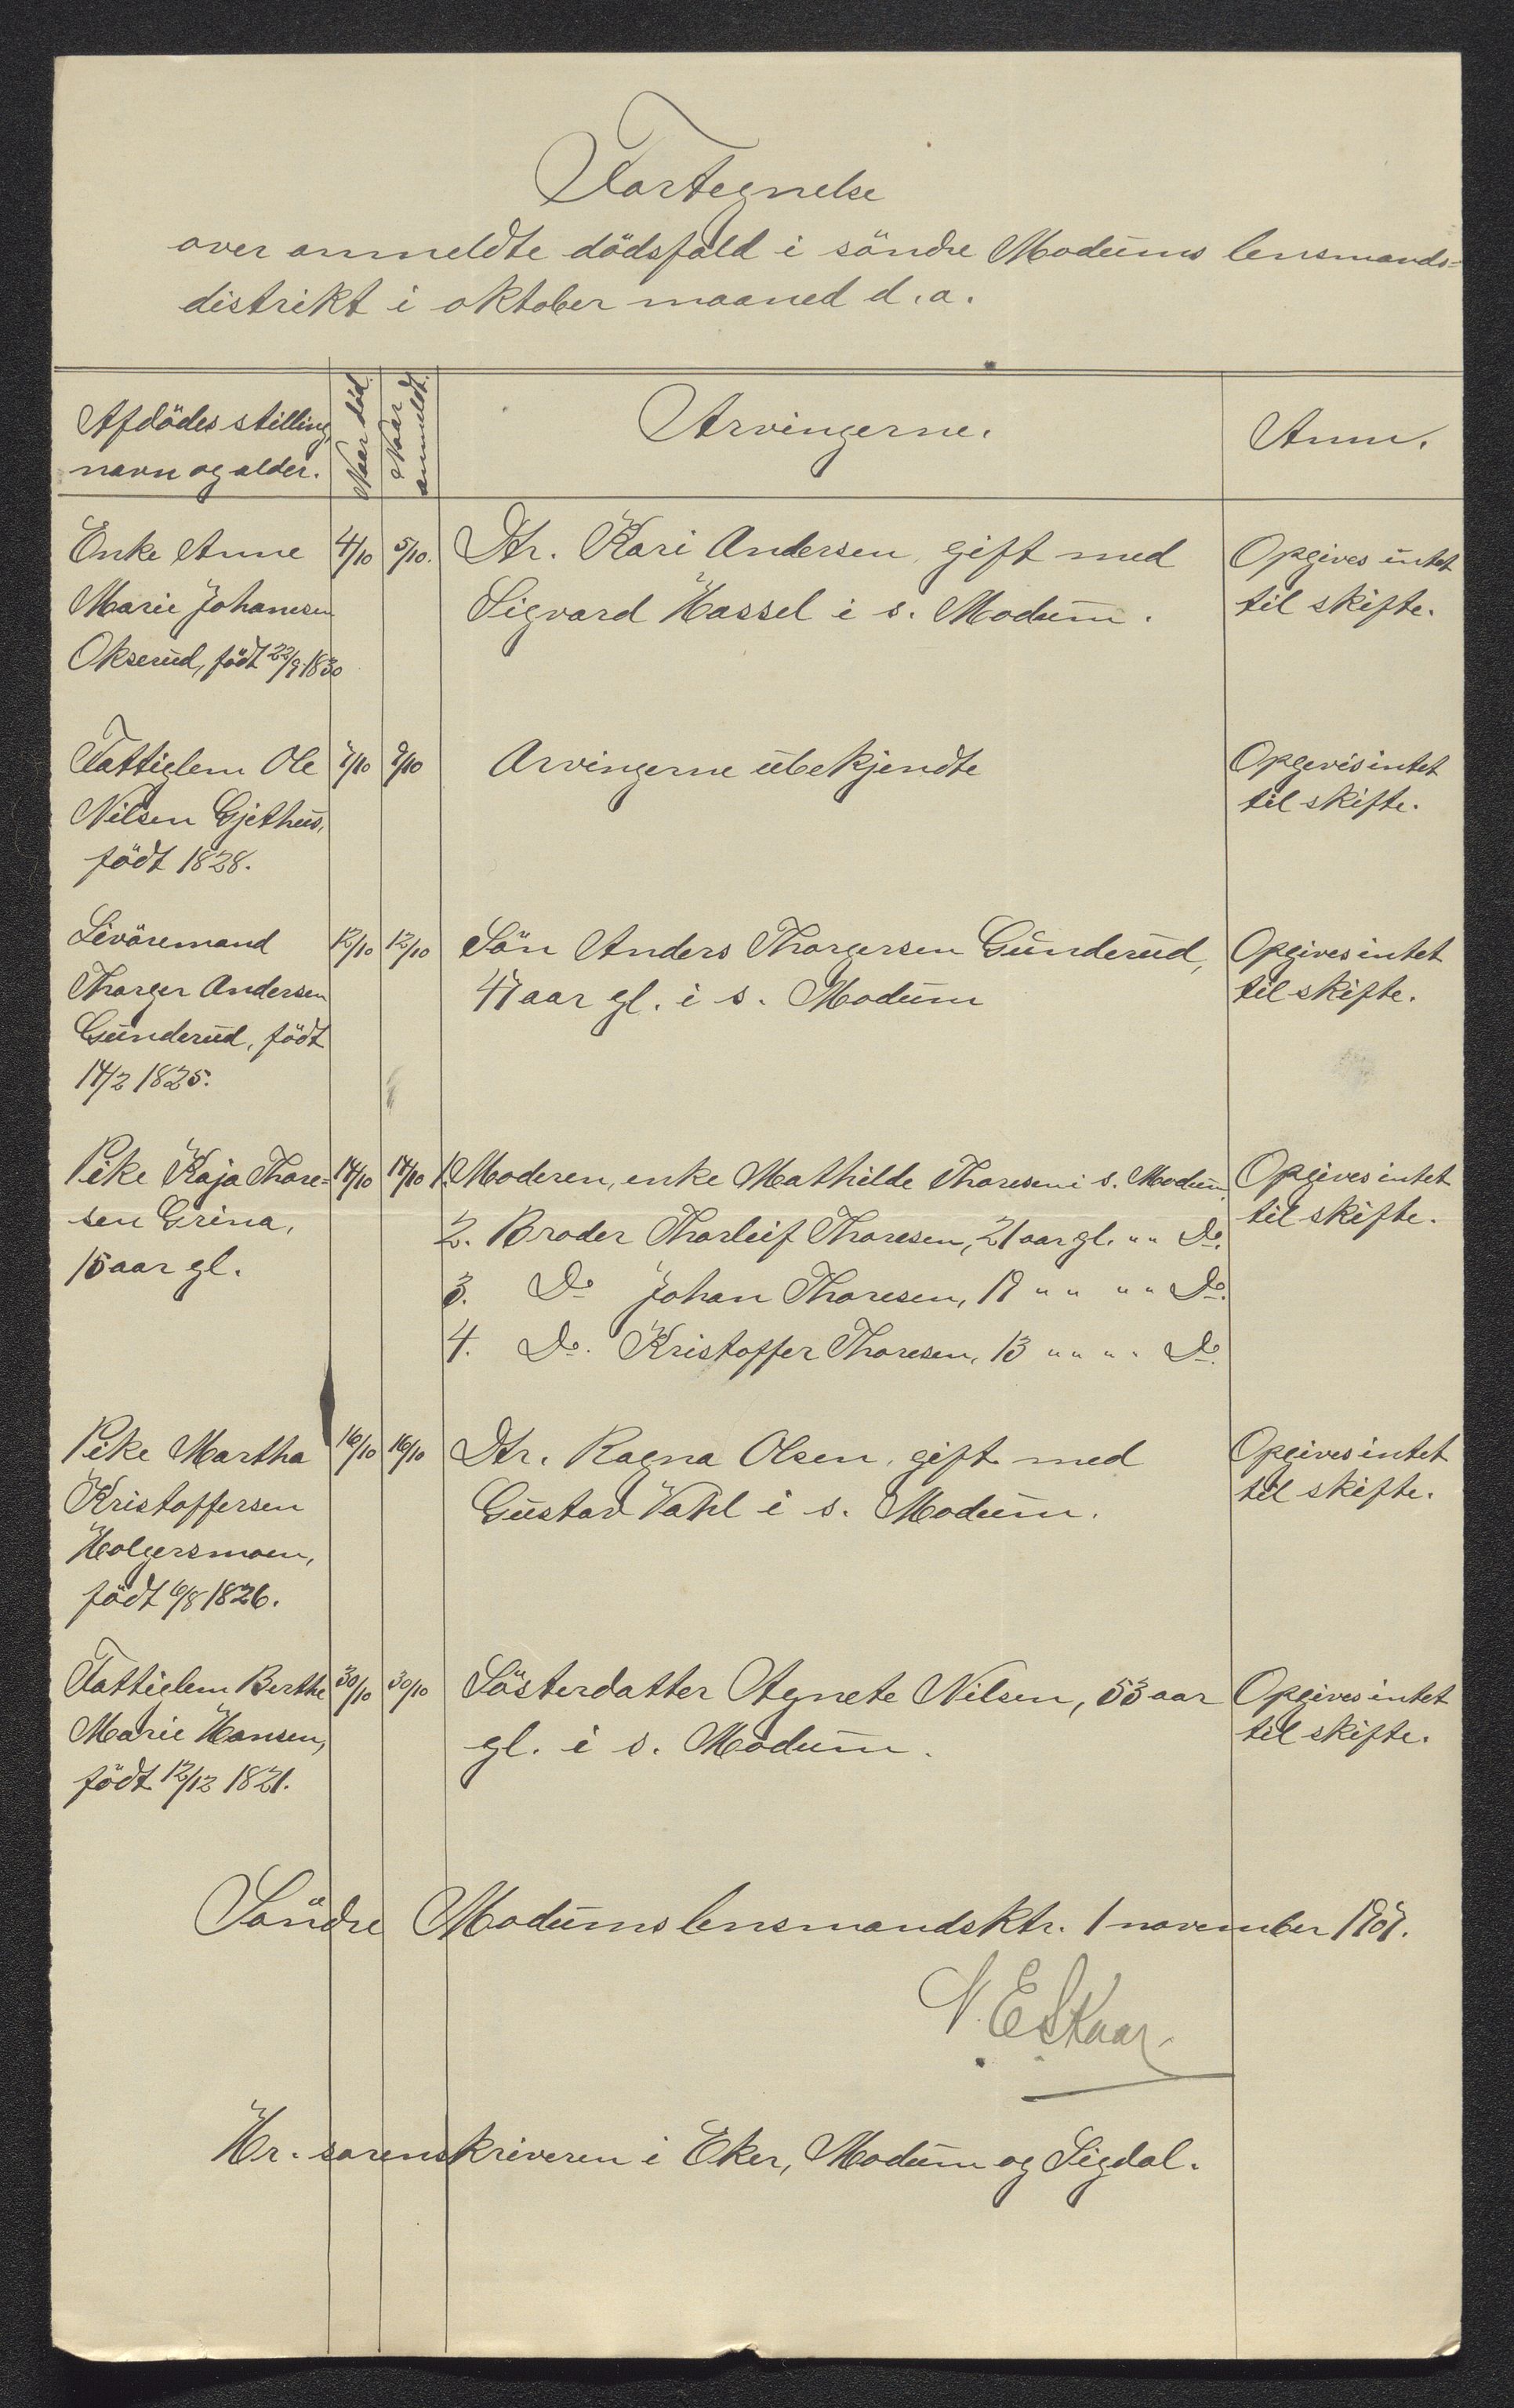 Fortegnelse
over anmeldte dödsfald i söndre Modums lensmands-
distrikt i oktober maaned d.a.
Afdödes stilling, navn og alder.
Naar död.
Naar anmeldt.
Arvingerne.
Anm.
Enke Anne 4/10 5/10. Dtr. Kari Andersen, gift med Opgives intet
Marie Johanesen Sigvard Hassel i s. Modum. til skifte.
Okserud, född 22/9 1830
Fattiglem Ole 7/10 9/10 Arvingerne ubekjendte Opgives intet
Nilsen Gjethus, til skifte.
född 1828.
Livöremand 12/10 12/10 Sön Anders Thorgersen Gunderud, Opgives intet
Thorger Andersen 47 aar gl. i s. Modum til skifte.
Gunderud, född
14/2 1825.
Pike Kaja Thore- 14/10 14/10 1. Moderen, enke Mathilde Thoresen i s. Modum, Opgives intet
sen Grina, 2. Broder Thorleif Thoresen, 21 aar gl. " " Do. til skifte.
15 aar gl. 3. Do Johan Thoresen, 19 " " " " Do.
4. Do. Kristoffer Thoresen, 13 " " " " Do.
Pike Martha 16/10 16/10 Dtr. Ragna Olsen, gift med Opgives intet
Kristoffersen Gustav Vahl i s. Modum. til skifte.
Holgersmoen,
född 6/8 1826.
Fattiglem Berthe 30/10 30/10 Sösterdatter Agnete Nilsen, 53 aar Opgives intet
Marie Hansen, gl. i s. Modum. til skifte.
född 12/12 1821.
Söndre Modums lensmandsktr. 1 november 1907.
N. E. Skaar
Hr. sorenskriveren i Eker, Modum og Sigdal.